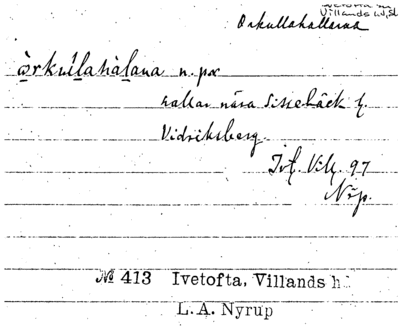 Ivetofta sn
Villands hd, Sk
Orkullahallarna
òrkul̀lahàlana n. pr
hallar nära Sissebäck o.
Vidriksberg.
Ivt. Vilh. 97
Nrp.
№ 413 Ivetofta, Villands h.
L. A. Nyrup